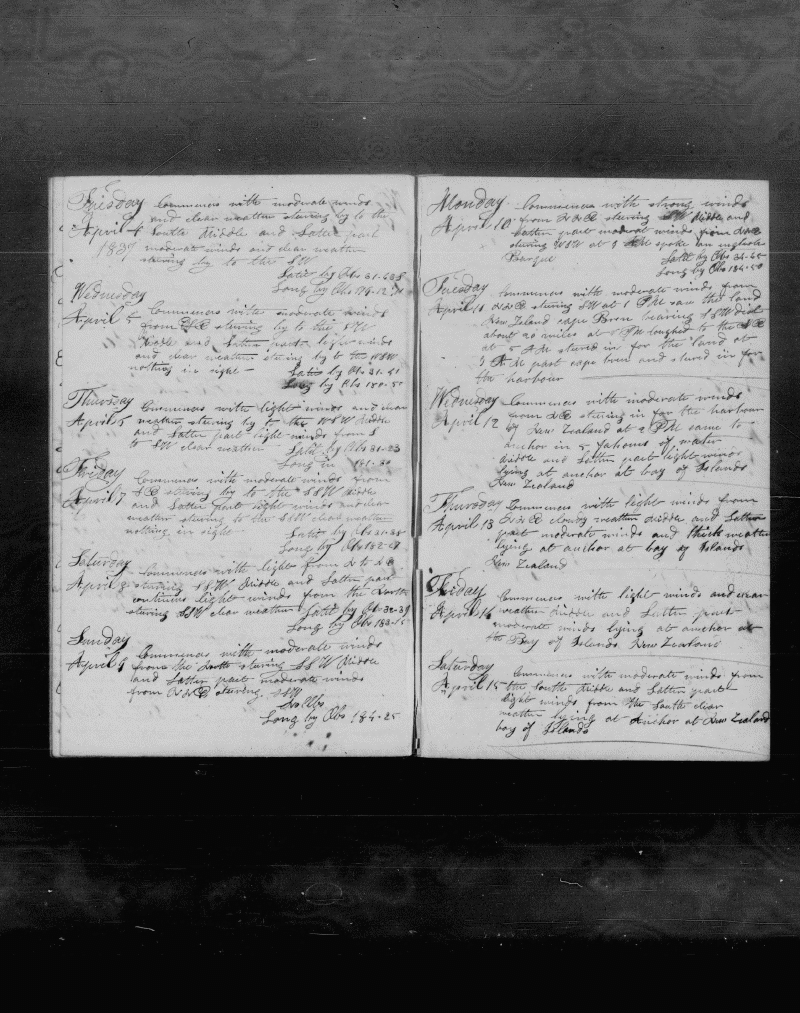 Tuesday Commences with moderate winds
and clear weather stering by to the
April 4 South Middle and Latter part
1837 moderate winds and clear weather
stering by to the SW
Latt by Obs 31-
Long by Obs 179-12
Wednesday
Commences with moderate winds
April 5 from stering by to the SW
Middle and Latter part light winds
and clear weather stering by to the WSW
nothing in sight - Latt by Obs 31-41
Long by Obs 180-50
Thursday Commences with light winds and clear
April 6 weather stering by to the WSW Middle
and Latter part light winds from S
to SW clear weather - Latt by Obs 31-23
Long in 181-30
Friday Commences with moderate winds from
April 7 stering by to the SSW Middle
and Latter part light winds and clear
weather stering to the SSW clear weather
nothing in sight - Latt by Obs 31-38
Long by Obs 182-
Saturday Commences with light from N to
April 8 stering SSW Middle and Latter part
continues light winds from the North
stering SSW clear weather Latt by Ob 32-39
Long by Obs 183-15
Sunday
Commences with moderate winds
April 9 from the North stering SSW Middle
and Latter part moderate winds
from NNE stering SSW
No Obs
Long by Obs 184-25
Monday Commences with strong winds
April 10 from NNE stering SW Middle and
Latter part moderat winds from
stering WSW at 9 AM spoke an english
Barque Latt by Obs 34-
Long by Obs 184-50
Tuesday Commences with moderate winds from
April 11 NNE stering SW at 1 PM saw the land
New Zeland cape Bren bearing SSW dist
about 20 miles at PM loughed to the
at 5 AM stered in for the land at
9 AM past cape bren and stered in for
the harbour
Wednesday Commences with moderate winds
April 12 from stering in for the harbour
of New Zealand at 2 PM came to
anchor in 5 fathoms of water
Middle and Latter part light winds
lying at anchor at bay of Islands
New Zealand
Thursday Commences with light winds from
April 13 NNE cloudy weather Middle and Latter
part moderate winds and thick weather
lying at anchor at bay of Islands
New Zealand
Friday Commences with light winds and clear
April 14 weather Middle and Latter part
moderate winds lying at anchor at
the Bay of Islands New Zealand
Saturday Commences with moderate winds from
April 15 the South Middle and Latter part
light winds from the South clear
weather lying at Anchor at New Zealand
bay of Islands